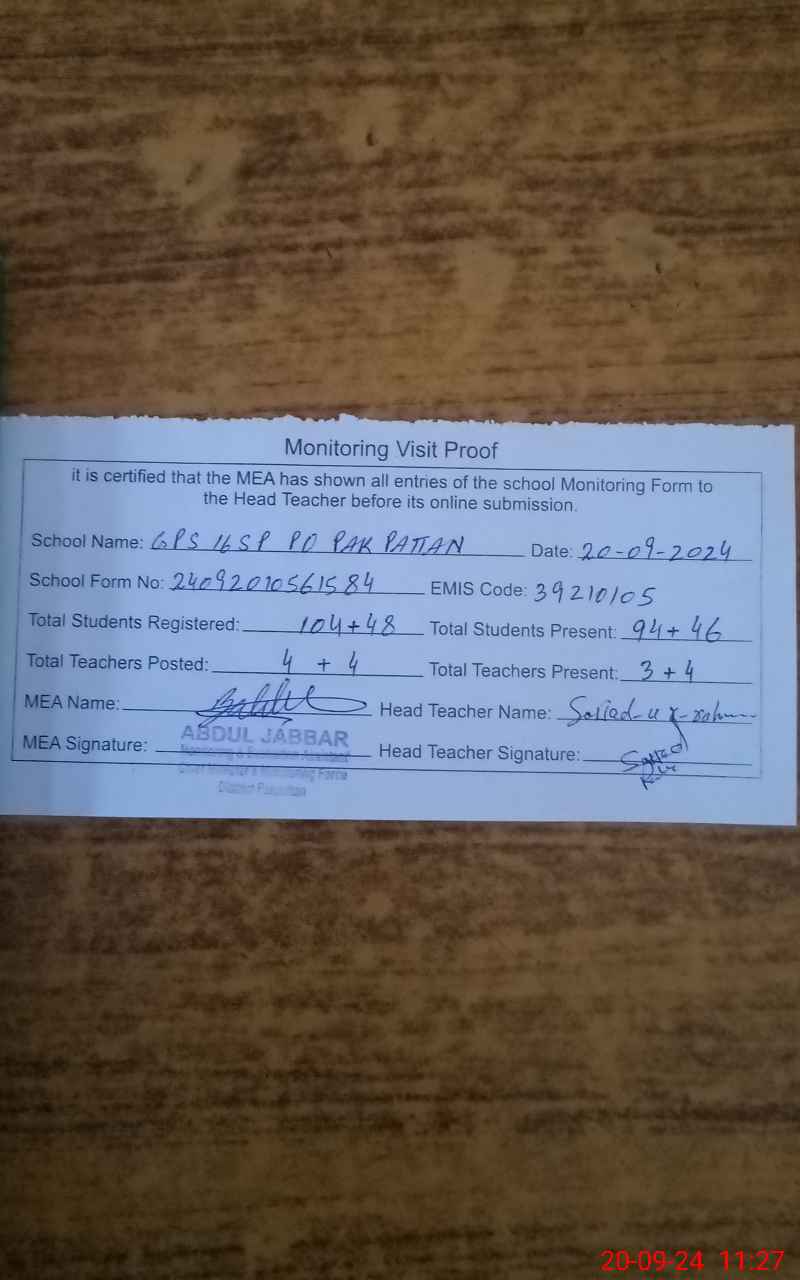 Monitoring Visit Proof
it is certified that the MEA has shown all entries of the school Monitoring Form to
the Head Teacher before its online submission.
School Name: GPS 16 SP PO PAK PATTAN Date: 20-09-2024
School Form No: 24092010561584 EMIS Code: 39210105
Total Students Registered: 104+48 Total Students Present: 94+46
Total Teachers Posted: 4 + 4 Total Teachers Present: 3+4
MEA Name: Head Teacher Name:
ABDUL JABBAR
MEA Signature: Head Teacher Signature:
Monitoring & Evaluation Assistant
Monitoring Force
District
20-09-24 11:27